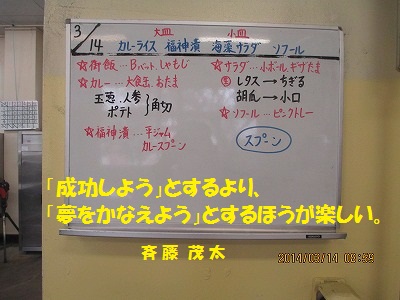 3/14 大皿 小皿
カレーライス 福神漬 海藻サラダ ソフール
☆御飯…B.バット、しゃもじ
☆カレー…大食缶、おたま
玉葱、人参
ポテト }角切
☆福神漬…平ジャム
カレースプーン
☆サラダ…小ボール、ギザたま
レタス→ちぎる
胡瓜→小口
☆ソフール…ピンクトレー
スプーン
「成功しよう」とするより、
「夢をかなえよう」とするほうが楽しい。
斉藤 茂太
2014/03/14 08:35